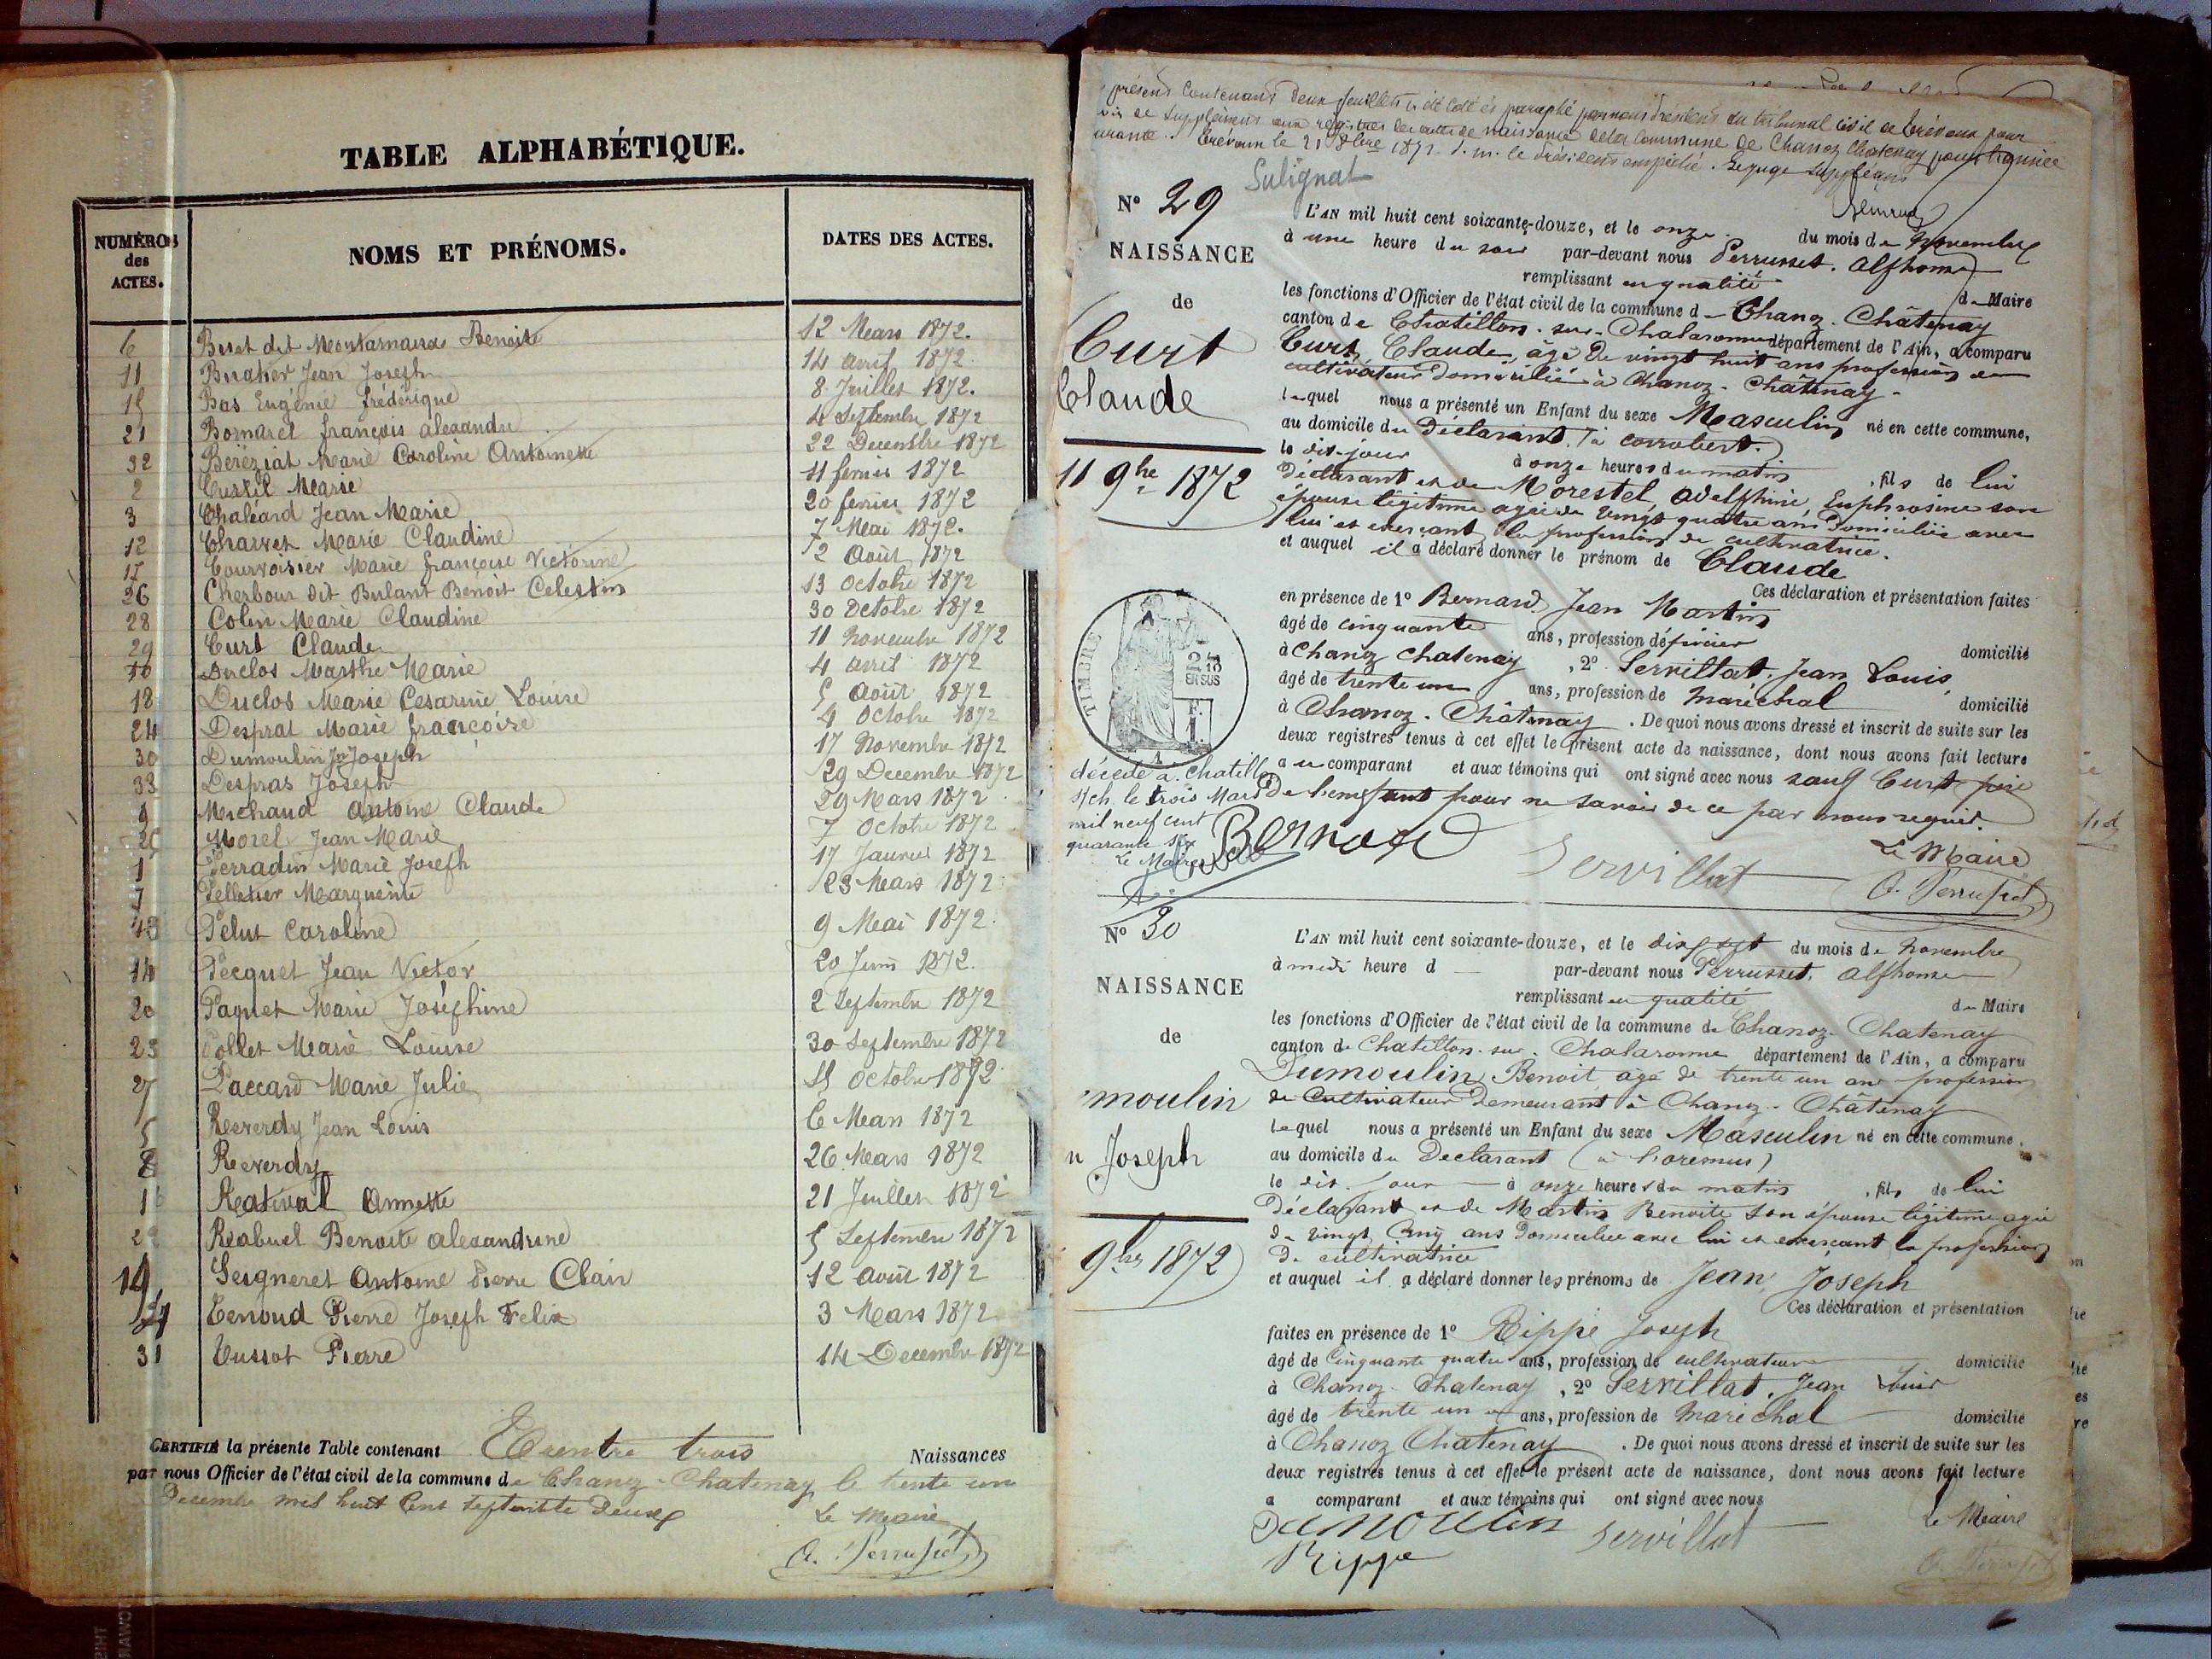 TABLE ALPHABÉTIQUE.
NUMÉROS des ACTES.
NOMS ET PRÉNOMS.
DATES DES ACTES.
6 Buset dit Montarnaud Benoite 12 Mars 1872.
11 Buathier Jean Joseph 14 avril 1872
15 Bas Eugénie frédérique 8 Juillet 1872.
21 Bomarel françois alexandre 4 Septembre 1872
32 Béréziat Marie Caroline Antoinette 22 Decembre 1872
2 Curtil Marie 11 fevrier 1872
3 Chaléard Jean Marie 20 fevrier 1872
12 Charvet Marie Claudine 7 Mai 1872.
17 Courvoisier Marie françoise Victorine 2 Août 1872
26 Cherbour dit Bulant Benoit Celestin 13 Octobre 1872
28 Colin Marie Claudine 30 Octobre 1872
29 Curt Claude 11 Novembre 1872
10 Duclos Marthe Marie 4 avril 1872
18 Duclos Marie Cesarine Louise 5 Août 1872
24 Desprat Marie françoise 4 Octobre 1872
30 Dumoulin Jn Joseph 17 Novembre 1872
33 Despras Joseph 29 Decembre 1872
9 Michaud Antoine Claude 29 Mars 1872
25 Morel Jean Marie 7 Octobre 1872
1 Perradin Marie Joseph 17 Janvier 1872
7 Pelletier Marguerite 23 Mars 1872
13 Pelut Caroline 9 Mai 1872.
14 Pecquet Jean Victor 20 Juin 1872.
20 Paquet Marie Joséphine 2 Septembre 1872
23 Pollet Marie Louise 30 Septembre 1872
27 Paccard Marie Julie 15 Octobre 1872
5 Reverdy Jean Louis 6 Mars 1872
8 Reverdy 26 Mars 1872
16 Rativat Annette 21 Juillet 1872
22 Rabuel Benoite alexandrine 5 Septembre 1872
19 Seigneret Antoine Pierre Clair 12 août 1872
4 Tenoud Pierre Joseph Felix 3 Mars 1872
31 Tussot Pierre 14 Decembre 1872
CERTIFIÉ la présente Table contenant Trentre trois Naissances
par nous Officier de l'état civil de la commune de Chanoz-Chatenay le trente un
Decembre mil huit Cent Septente Deux
Le Maire
A. Perrusset
présent Contenant Deux feuillets a été coté et paraphé par nous Président du tribunal civil de Trévoux pour
de Supplément aux registres des actes de naissance de la Commune de Chanoz Chatenay pour l'année
courante. Trévoux le 21 8bre 1872. P. m. le Président empêché. Le juge suppléant
Sulignat
N° 29
NAISSANCE
de
Curt
Claude
11 9bre 1872
L'AN mil huit cent soixante-douze, et le onze du mois de Novembre
à une heure du soir par-devant nous Perrusset. Alphonse
remplissant en qualité de Maire
les fonctions d'Officier de l'état civil de la commune de Chanoz-Châtenay
canton de Chatillon-sur-Chalaronne département de l'Ain, a comparu
Curt Claude, âgé de vingt huit ans profession de
cultivateur domicilié à Chanoz-Chatenay-
lequel nous a présenté un Enfant du sexe Masculin né en cette commune,
au domicile du Déclarant, à corrobert.
le dit-jour à onze heures du matin, fils de lui
Déclarant et de Morestel, Adelphine, Euphrosine son
épouse légitime agée de vingt quatre ans domiciliée avec
lui et exerçant la profession de cultivatrice.
et auquel il a déclaré donner le prénom de Claude
Ces déclaration et présentation faites
en présence de 1° Bernard Jean Martin
âgé de cinquante ans, profession de domicilié
à Chanoz Chatenay, 2° Servillat, Jean Louis
âgé de trente un ans, profession de maréchal domicilié
à Chanoz-Châtenay. De quoi nous avons dressé et inscrit de suite sur les
deux registres tenus à cet effet le présent acte de naissance, dont nous avons fait lecture
au comparant et aux témoins qui ont signé avec nous sauf Curt père
De l'enfant pour ne savoir de ce par nous requis.
TIMBRE
décédé à Chatillon
s/ch. le trois Mars
mil neuf cent
quarante six
Le Maire
Bernard
Servillat
Le Maire
A. Perrusset
N° 30
NAISSANCE
de
moulin
n Joseph
9bre 1872
L'AN mil huit cent soixante-douze, et le dix sept du mois de Novembre
à midi heure d par-devant nous Perrusset, Alphonse
remplissant en qualité de Maire
les fonctions d'Officier de l'état civil de la commune de Chanoz-Chatenay
canton de Chatillon-sur-Chalaronne département de l'Ain, a comparu
Dumoulin Benoit agé de trente un ans profession
de Cultivateur Demeurant à Chanoz-Châtenay
lequel nous a présenté un Enfant du sexe Masculin né en cette commune,
au domicile du Déclarant (à l'oremus)
le dit-jour à onze heures du matin, fils de lui
Déclarant et de Martin Benoite son épouse légitime agée
de vingt cinq ans Domiciliée avec lui et exerçant la profession
De cultivatrice
et auquel il a déclaré donner les prénoms de Jean, Joseph
Ces déclaration et présentation
faites en présence de 1° Rippe Joseph
âgé de Cinquante quatre ans, profession de cultivateur domicilié
à Chanoz-Chatenay, 2° Servillat. Jean Louis
âgé de trente un ans, profession de maréchal domicilié
à Chanoz Chatenay. De quoi nous avons dressé et inscrit de suite sur les
deux registres tenus à cet effet le présent acte de naissance, dont nous avons fait lecture
a comparant et aux témoins qui ont signé avec nous
Le Maire
Dumoulin Servillat
Rippe
A. Perrusset